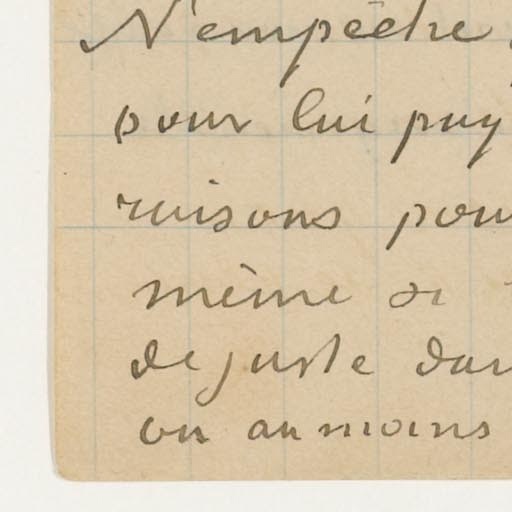 N'empêche
pour lui puy
raisons pour
même si
de juste dan
ou au moins